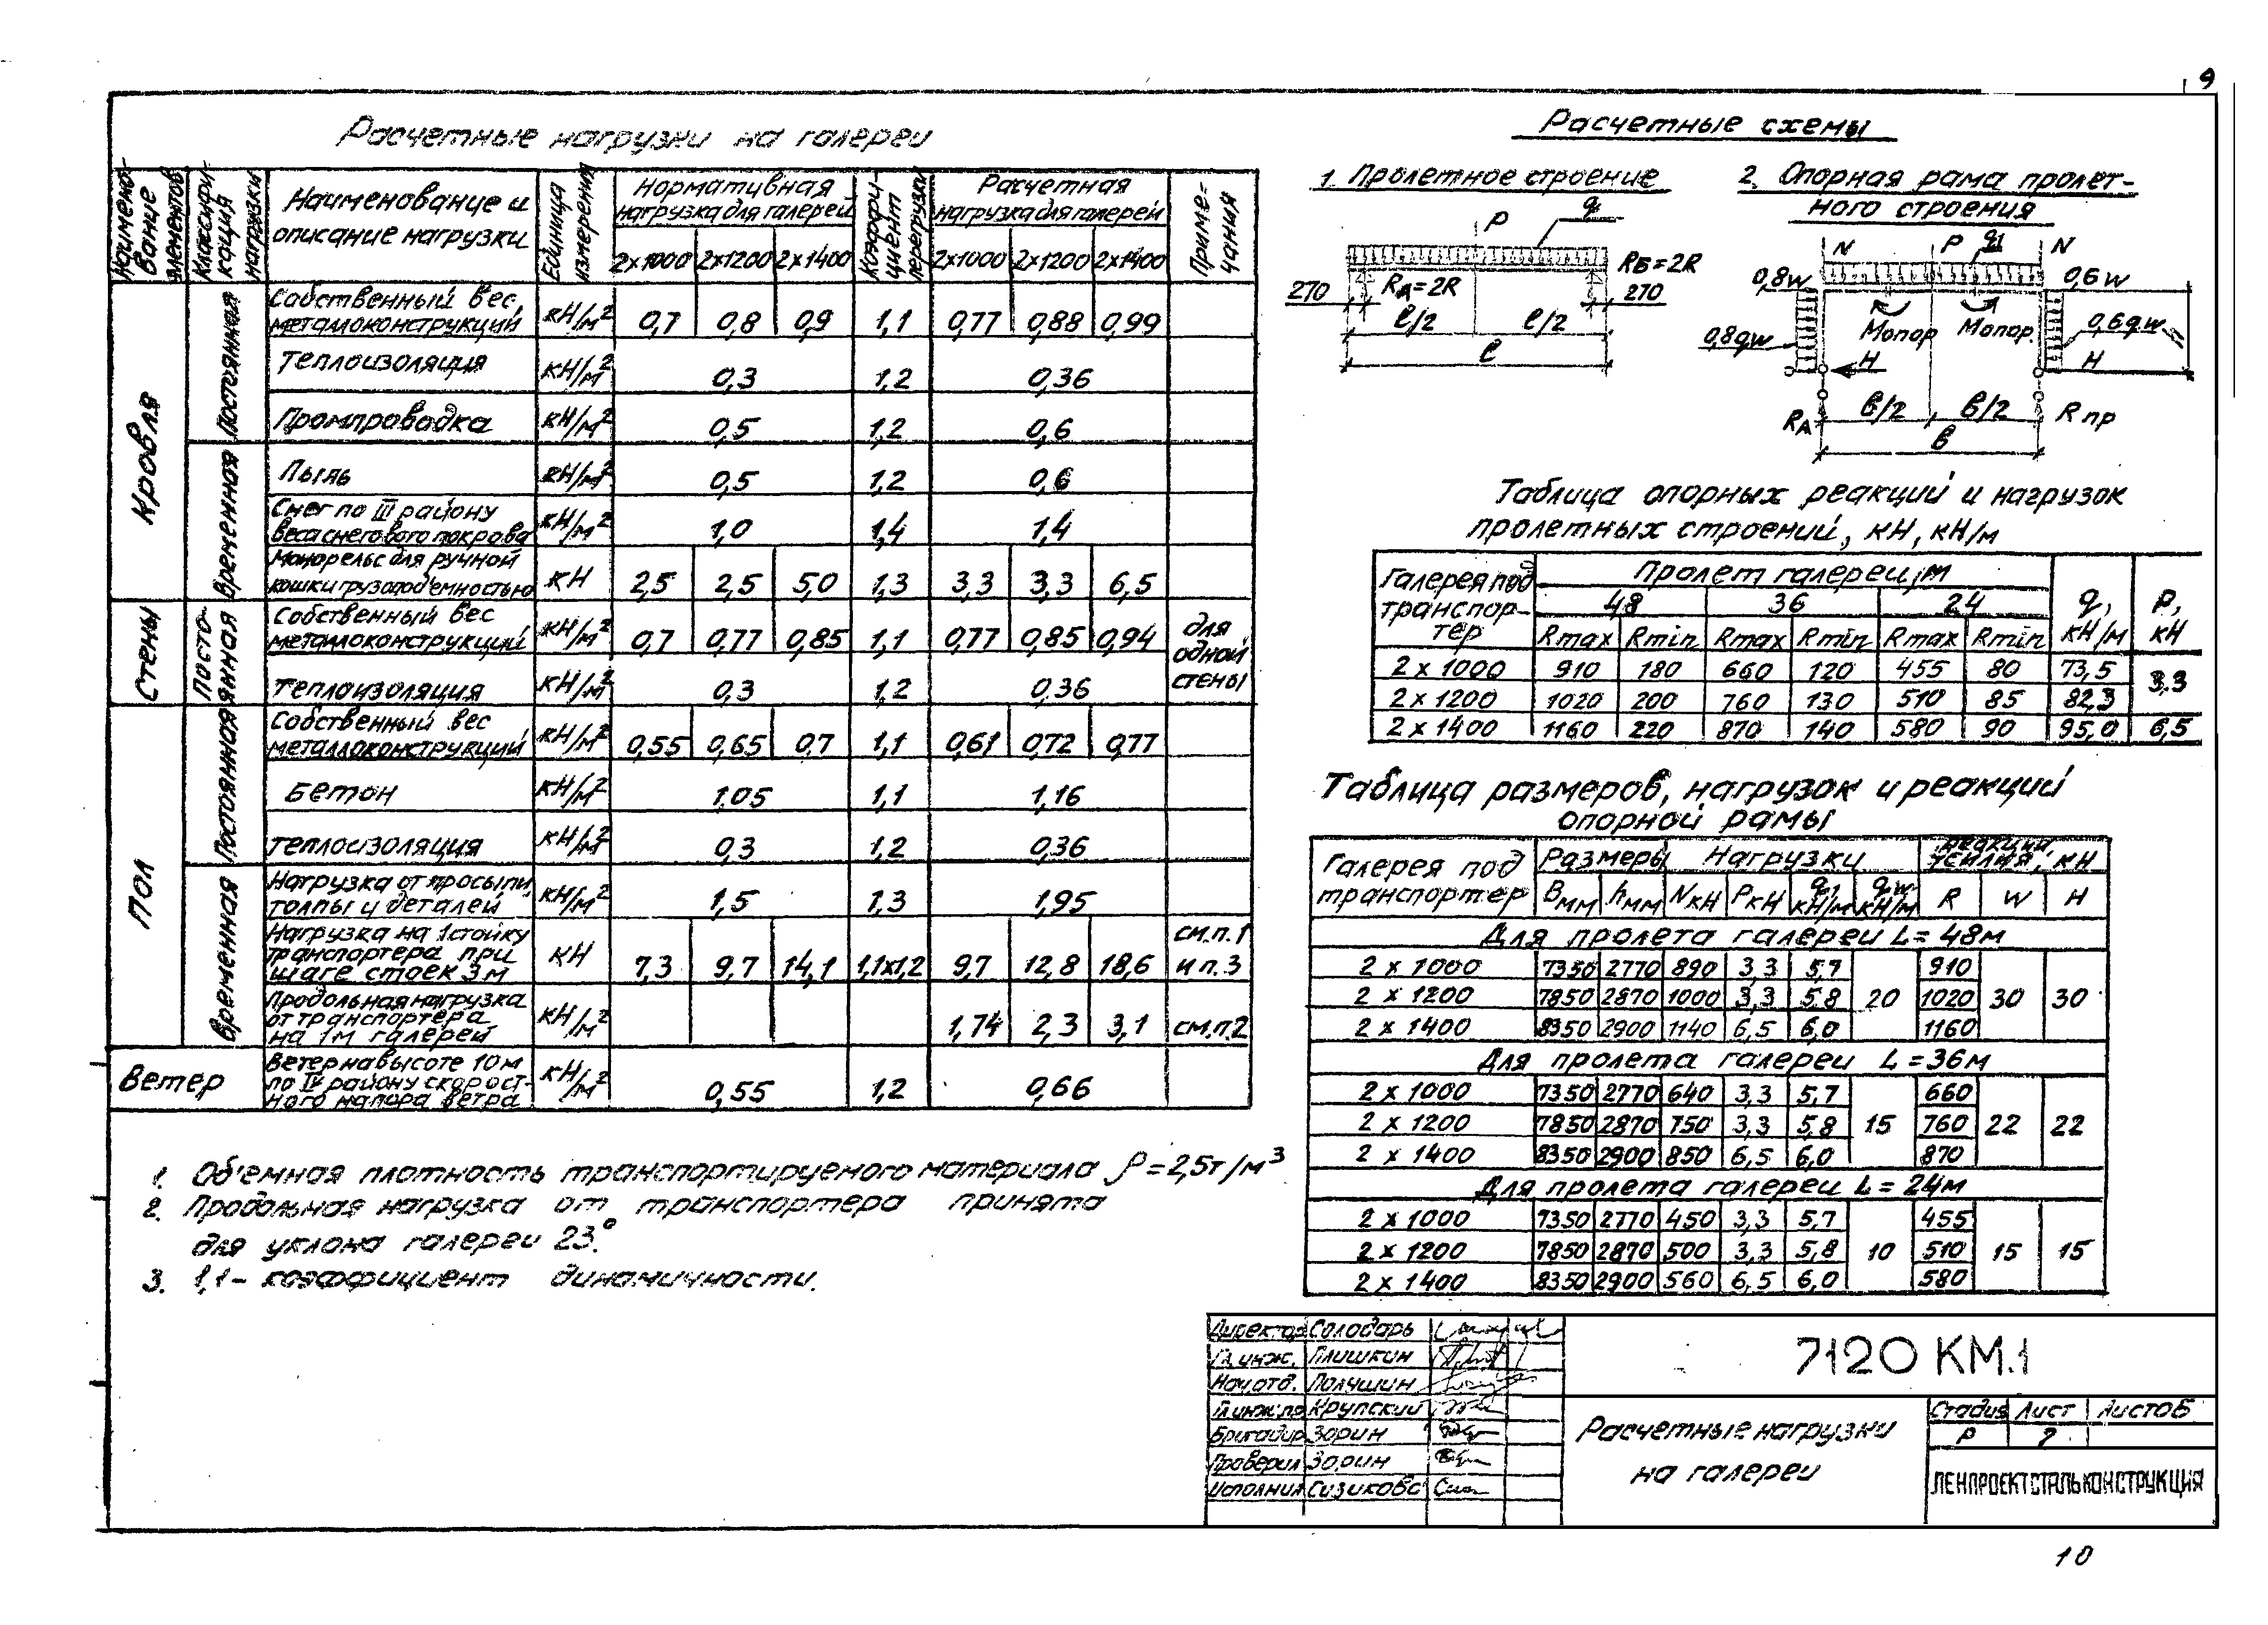 9
Расчетные нагрузки на галереи
Наимено-вание элементов | Классифи-кация нагрузки | Наименование и описание нагрузки | Единица измерения | Нормативная нагрузка для галерей | Коэффи-циент перегрузки | Расчетная нагрузка для галерей | Приме-чания
2х1000 2х1200 2х1400 2х1000 2х1200 2х1400
Кровля
Постоянная
Собственный вес металлоконструкций кН/м² 0,7 0,8 0,9 1,1 0,77 0,88 0,99
Теплоизоляция кН/м² 0,3 1,2 0,36
Промпроводка кН/м² 0,5 1,2 0,6
Временная
Пыль кН/м² 0,5 1,2 0,6
Снег по III району веса снегового покрова кН/м² 1,0 1,4 1,4
Монорельс для ручной кошки грузопод'емностью кН 2,5 2,5 5,0 1,3 3,3 3,3 6,5
Стены
Посто-янная
Собственный вес металлоконструкций кН/м² 0,7 0,77 0,85 1,1 0,77 0,85 0,94 для одной стены
Теплоизоляция кН/м² 0,3 1,2 0,36
Пол
Постоянная
Собственный вес металлоконструкций кН/м² 0,55 0,65 0,7 1,1 0,61 0,72 0,77
Бетон кН/м² 1,05 1,1 1,16
Теплоизоляция кН/м² 0,3 1,2 0,36
Временная
Нагрузка от просыпи, толпы и деталей кН/м² 1,5 1,3 1,95
Нагрузка на 1 стойку транспортера при шаге стоек 3 м кН 7,3 9,7 14,1 1,1х1,2 9,7 12,8 18,6 см.п.1 и п.3
Продольная нагрузка от транспортера на 1м галерей кН/м² 1,74 2,3 3,1 см.п.2
Ветер
Ветер на высоте 10 м по IV району скорост-ного напора ветра кН/м² 0,55 1,2 0,66
1. Об'емная плотность транспортируемого материала ρ = 2,5т/м³
2. Продольная нагрузка от транспортера принята
для уклона галереи 23°.
3. 1,1 – коэффициент динамичности.
Расчетные схемы
1. Пролетное строение
P q
RА=2R RБ=2R
270 270
ℓ/2 ℓ/2
ℓ
2. Опорная рама пролет-
ного строения
N P q1 N
0,8w 0,6w
0,8qw Мопор Мопор. 0,6qw
H H
h
RА в/2 в/2 Rпр
в
Таблица опорных реакций и нагрузок
пролетных строений, кН, кН/м
Галерея под транспор-тер | Пролет галереи, м | q, кН/м | P, кН
48 36 24
Rmax Rmin Rmax Rmin Rmax Rmin
2 х 1000 910 180 660 120 455 80 73,5 3,3
2 х 1200 1020 200 760 130 510 85 82,3
2 х 1400 1160 220 870 140 580 90 95,0 6,5
Таблица размеров, нагрузок и реакций
опорной рамы
Галерея под транспортер | Размеры | Нагрузки | Реакции, усилия, кН
Вмм hмм Nкн Pкн q1 кН/м qw кН/м R W H
Для пролета галереи L = 48м
2 х 1000 7350 2770 890 3,3 5,7 910
2 х 1200 7850 2870 1000 3,3 5,8 20 1020 30 30
2 х 1400 8350 2900 1140 6,5 6,0 1160
Для пролета галереи L = 36м
2 х 1000 7350 2770 640 3,3 5,7 660
2 х 1200 7850 2870 750 3,3 5,8 15 760 22 22
2 х 1400 8350 2900 850 6,5 6,0 870
Для пролета галереи L = 24м
2 х 1000 7350 2770 450 3,3 5,7 455
2 х 1200 7850 2870 500 3,3 5,8 10 510 15 15
2 х 1400 8350 2900 560 6,5 6,0 580
Директор Солодарь
Гл.инж. Плишкин
Нач.отд. Полушин
Гл.инж.пр Крупский
Бригадир Зорин
Проверил Зорин
Исполнил Сизикова
7120 КМ.1
Расчетные нагрузки
на галереи
Стадия Лист Листов
Р 2
ЛЕНПРОЕКТСТАЛЬКОНСТРУКЦИЯ
10